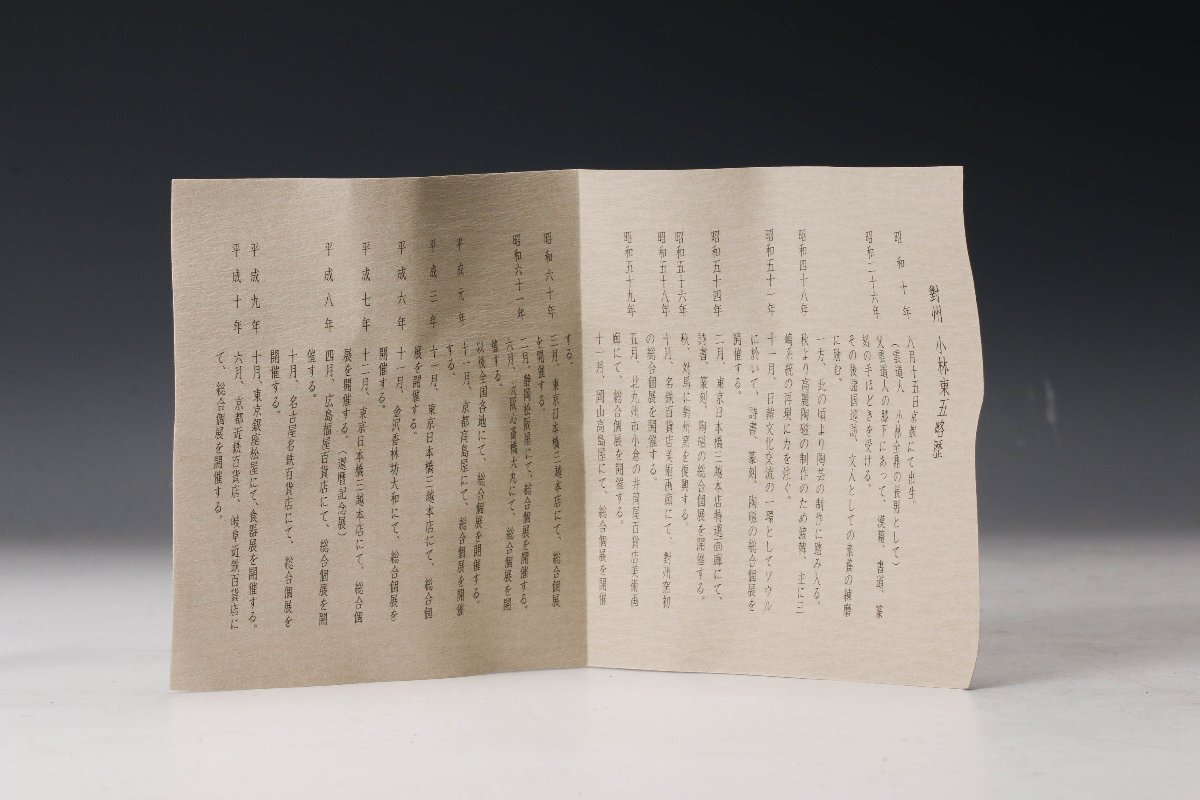 對州 小林東五略歴
昭和十年 八月十五日京都にて出生。
(雲道人 小林全鼎の長男として)
昭和二十六年 父雲道人の膝下にあって、漢籍、書道、篆
刻の手ほどきを受ける。
その後諸国巡訪。文人としての素養の練磨
に励む。
一方、此の頃より陶芸の制作に踏み入る。
昭和四十八年 秋より高麗陶磁の制作のため渡韓、主に三
島系統の再現に力を注ぐ。
昭和五十一年 十一月、日韓文化交流の一環としてソウル
に於いて、詩書、篆刻、陶磁の総合個展を
開催する。
昭和五十四年 二月、東京日本橋三越本店特選画廊にて、
詩書、篆刻、陶磁の総合個展を開催する。
昭和五十六年 秋、対馬に對州窯を復興する。
昭和五十八年 十月、名鉄百貨店美術画廊にて、對州窯初
の総合個展を開催する。
昭和五十九年 五月、北九州市小倉の井筒屋百貨店美術画
廊にて、総合個展を開催する。
十一月、岡山高島屋にて、総合個展を開催
する。
昭和六十年 三月、東京日本橋三越本店にて、総合個展
を開催する。
昭和六十一年 二月、静岡松坂屋にて、総合個展を開催する。
六月、大阪心斎橋大丸にて、総合個展を開
催する。
以後全国各地にて、総合個展を開催する。
平成元年 十一月、京都高島屋にて、総合個展を開催
する。
平成三年 十一月、東京日本橋三越本店にて、総合個
展を開催する。
平成六年 十一月、金沢香林坊大和にて、総合個展を
開催する。
平成七年 十二月、東京日本橋三越本店にて、総合個
展を開催する。(還暦記念展)
平成八年 四月、広島福屋百貨店にて、総合個展を開
催する。
十月、名古屋名鉄百貨店にて、総合個展を
開催する。
平成九年 十月、東京銀座松屋にて、食器展を開催する。
平成十年 六月、京都近鉄百貨店、岐阜近鉄百貨店に
て、総合個展を開催する。